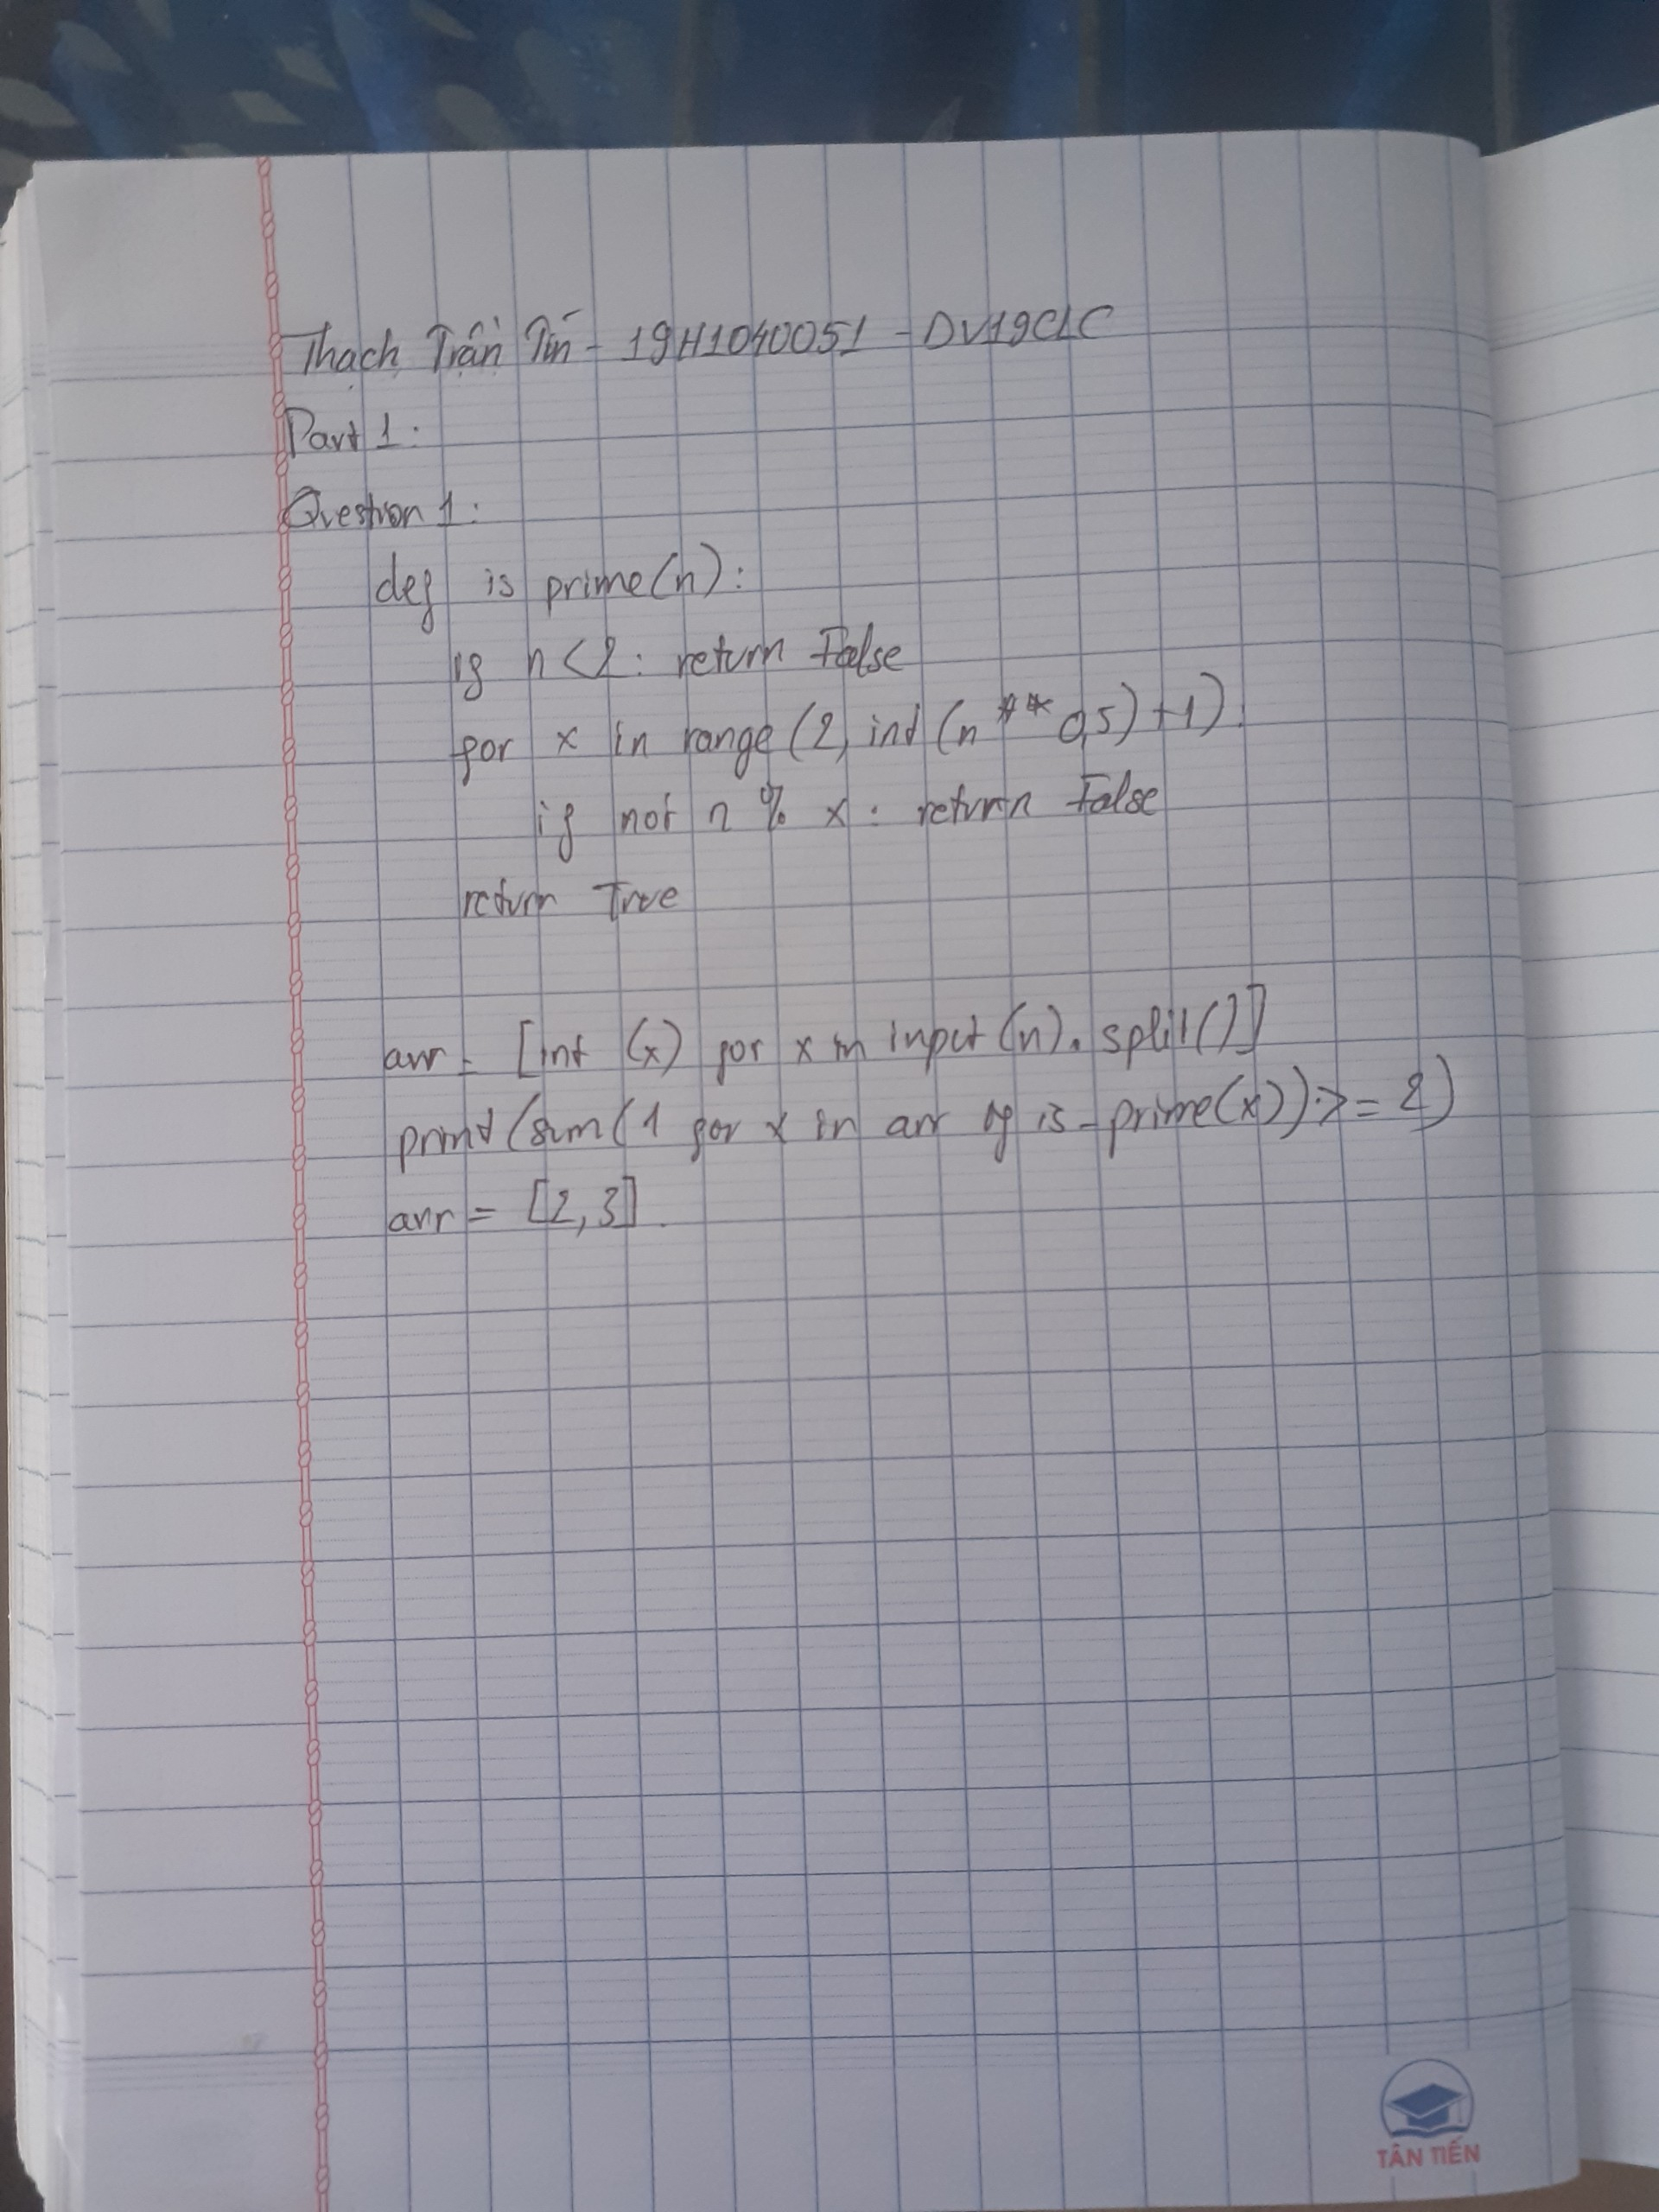 Thạch Trận Tín - 19H1040051 - DV19CLC
Part 1:
Question 1:
def is prime(n):
if n < 2: return False
for x in range (2, int (n ** 0,5) + 1):
if not n % x: return False
return True
arr = [int (x) for x in input (n). split()]
print (sum (1 for x in arr if is_prime(x)) >= 2)
arr = [2,3].
TÂN TIẾN